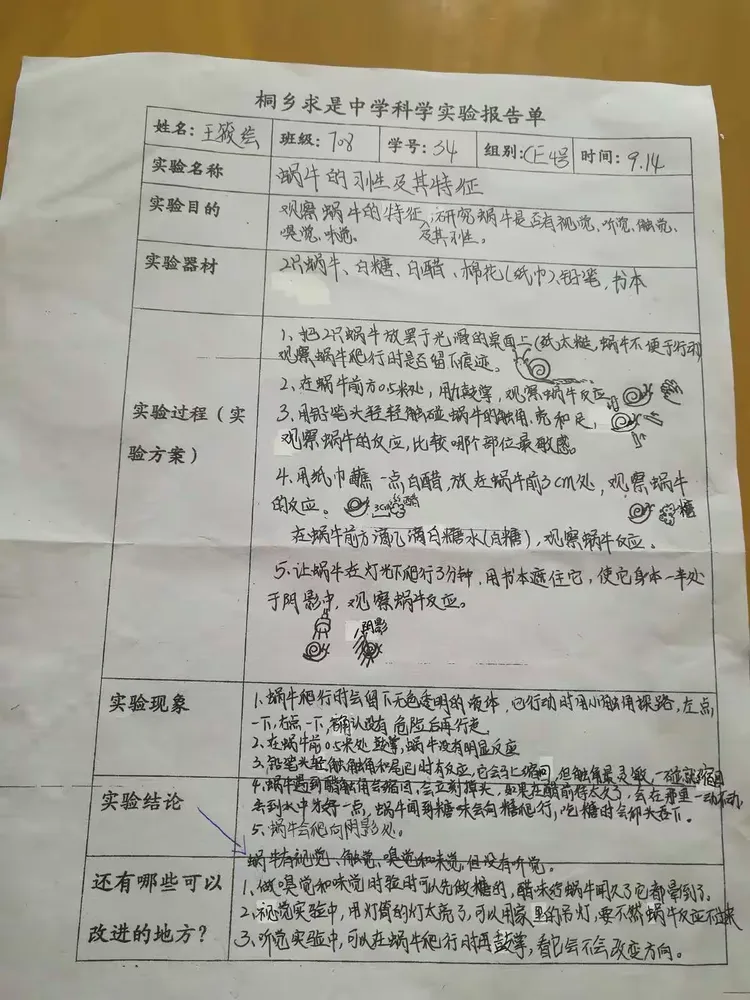 桐乡求是中学科学实验报告单
姓名: 王筱绘 班级: 708 学号: 34 组别: C任4号 时间: 9.14
实验名称 蜗牛的习性及其特征
实验目的 观察蜗牛的特征及其习性。研究蜗牛是否有视觉、听觉、触觉、
嗅觉、味觉。
实验器材 2只蜗牛、白糖、白醋、棉花(纸巾)、铅笔,书本
实验过程(实
验方案)
1、把2只蜗牛放置于光滑的桌面上(纸太糙,蜗牛不便于行动)
观察蜗牛爬行时是否留下痕迹。
2、在蜗牛前方0.5米处,用力鼓掌,观察蜗牛反应
3、用铅笔头轻轻触碰蜗牛的触角、壳和足,
观察蜗牛的反应,比较哪个部位最敏感。
4、用纸巾蘸一点白醋,放在蜗牛前3cm处,观察蜗牛
的反应。 3cm 醋 糖
在蜗牛前方滴几滴白糖水(白糖),观察蜗牛反应。
5、让蜗牛在灯光下爬行3分钟,用书本遮住它,使它身体一半处
于阴影中,观察蜗牛反应。
阴影
实验现象
1、蜗牛爬行时会留下无色透明的液体,它行动时用小触角探路,左点
一下,右点一下,确认没有危险后再行走
2、在蜗牛前0.5米处鼓掌,蜗牛没有明显反应
3、铅笔头轻触触角和尾巴时有反应,它会马上缩回,但触角最灵敏,一碰就缩回
实验结论
4、蜗牛遇到醋触角会缩回,会立刻掉头,如果在醋前待太久了,会在那里一动不动
去到水中才好一点,蜗牛闻到糖味会向糖爬行,吃糖时会仰头
5、蜗牛会爬向阴影处。
蜗牛有视觉、触觉、嗅觉和味觉,但没有听觉。
还有哪些可以
改进的地方?
1、做嗅觉和味觉时验时可以先做糖的,醋味给蜗牛闻久了它都晕倒了。
2、视觉实验中,用灯管的灯太亮了,可以用家里的吊灯,要不然蜗牛反应不过来
3、听觉实验中,可以在蜗牛爬行时再鼓掌,看它会不会改变方向。